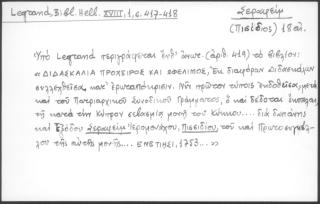 Legrand, Bibl. Hell. XVIII, 1, σ. 417-418
Σεραφείμ
(Πισίδιος) 18 αἰ.
Ὑπὸ Legrand περιγράφεται ἐνθ' ἀνωτ. (ἀριθ. 419) τὸ βιβλίον:
«ΔΙΔΑΣΚΑΛΙΑ ΠΡΟΧΕΙΡΟΣ ΚΑΙ ΩΦΕΛΙΜΟΣ, Ἐκ διαφόρων Διδασκάλων
συλλεχθεῖσα, κατ' ἐρωταπόκρισιν. Νῦν πρῶτον τύποις ἐκδοθεῖσα, μετὰ
καὶ τοῦ Πατριαρχικοῦ Συνοδικοῦ Γράμματος, ὃ καὶ δέδοται
τῇ κατὰ τὴν Κύπρον σεβασμίᾳ μονῇ τοῦ Κύκκου.... διὰ δαπάνης
καὶ ἐξόδου Σεραφεὶμ Ἱερομονάχου, Πισσιδίου, τοῦ καὶ Πρωτοσυγκέλ-
λου τῆς αὐτῆς μονῆς.... ΕΝΕΤΙΗΣΙ, 1753...»